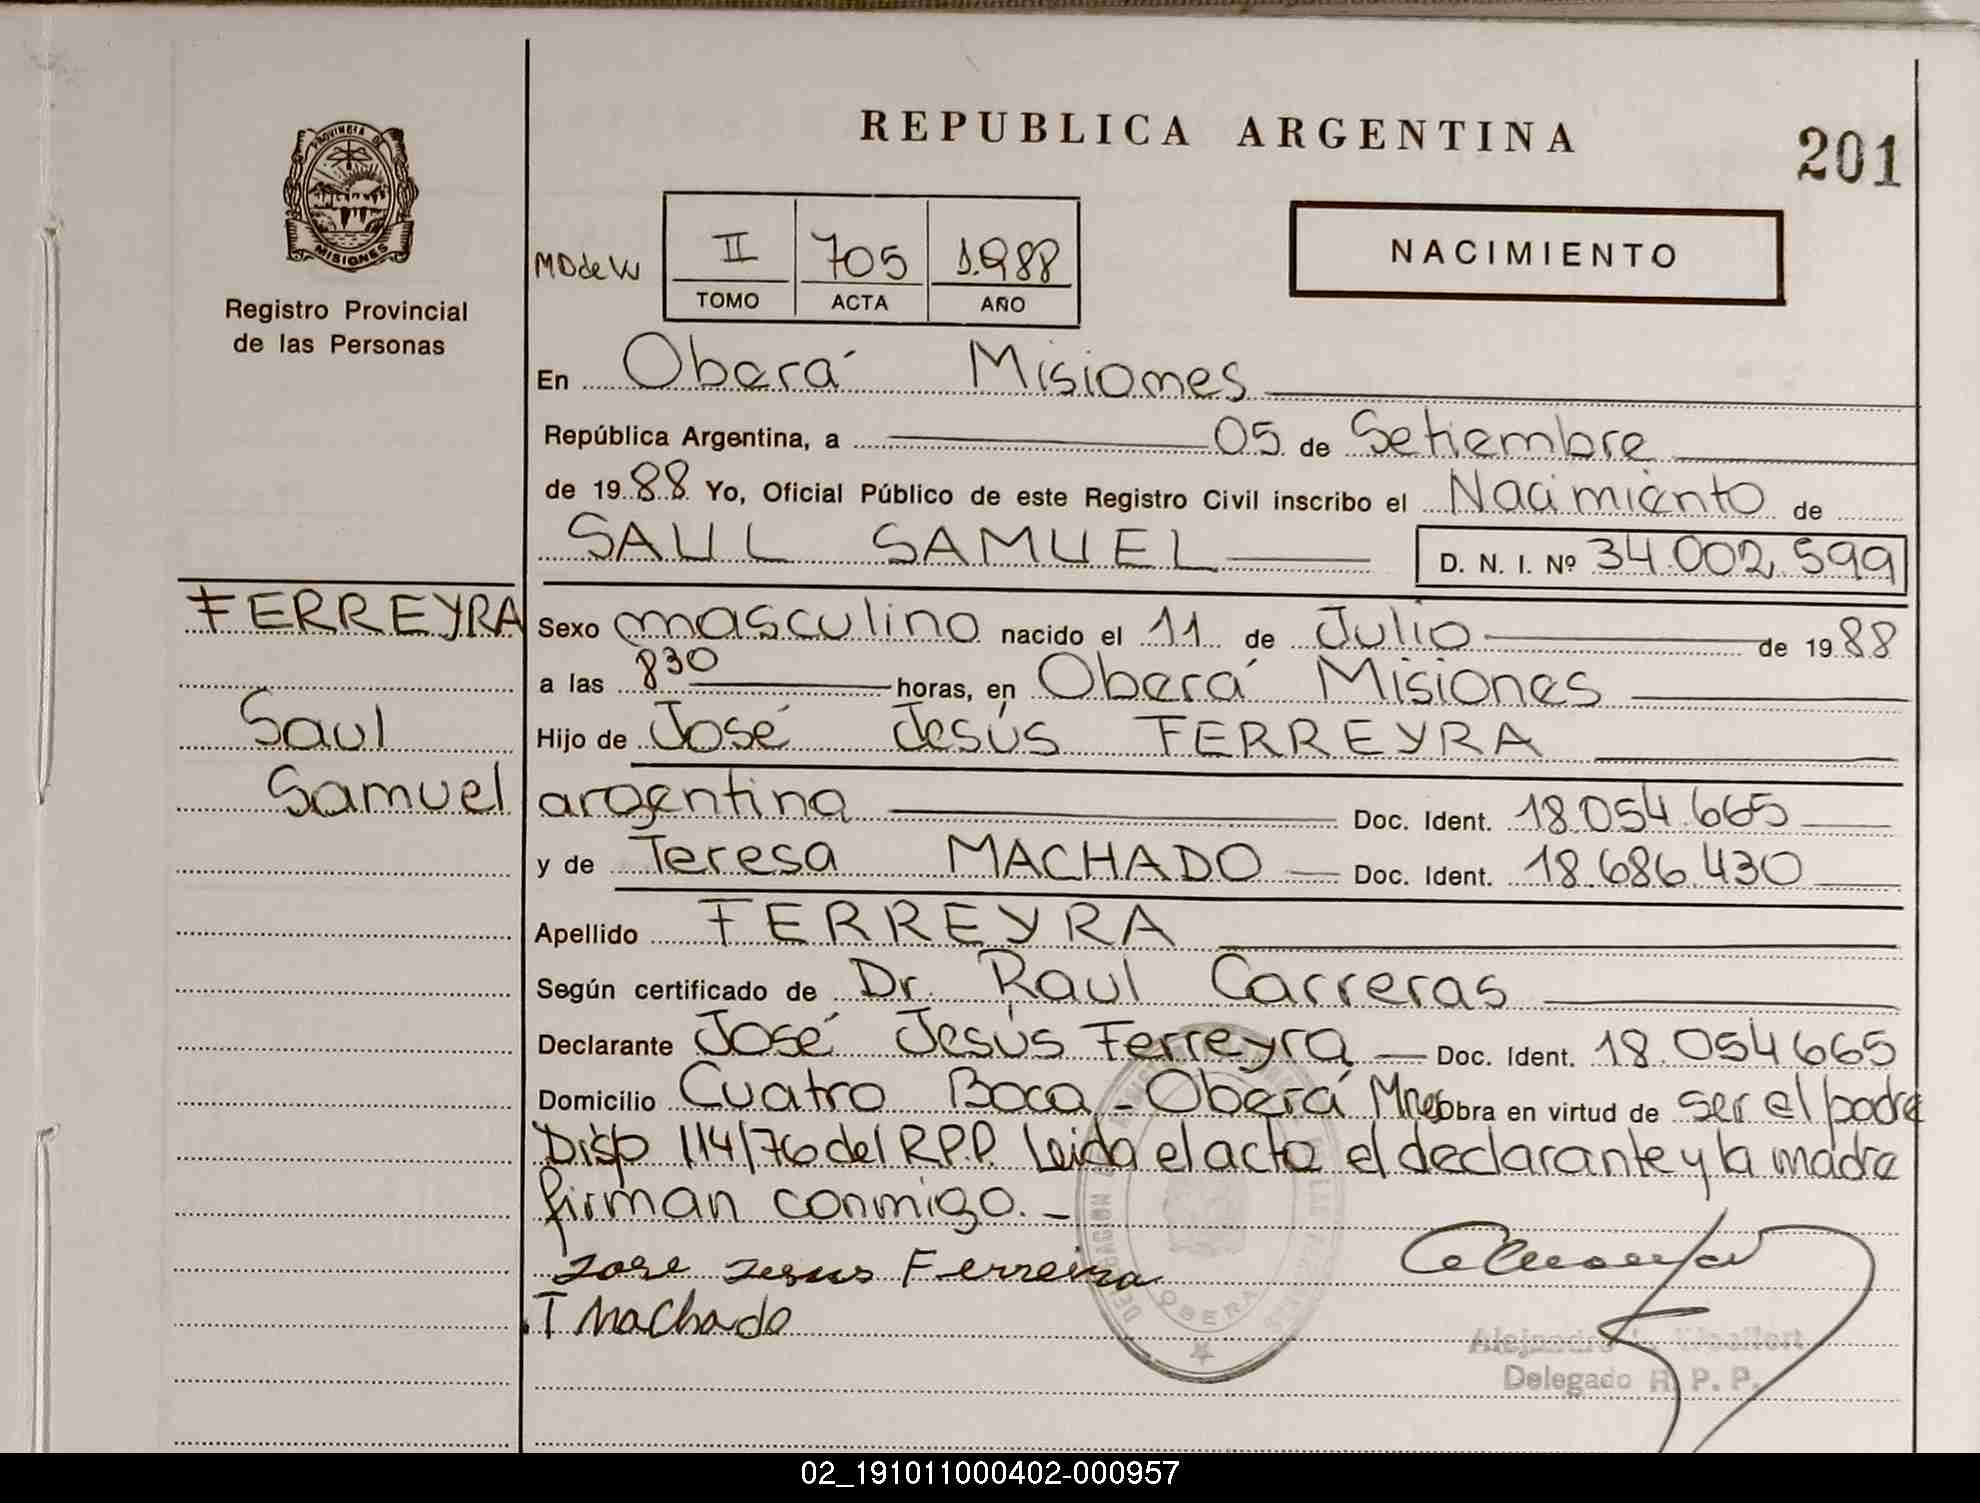 PROVINCIA DE
MISIONES
Registro Provincial
de las Personas
REPUBLICA ARGENTINA
201
MDdeW
II 705 1.988
TOMO ACTA AÑO
NACIMIENTO
En Oberá Misiones
República Argentina, a 05 de Setiembre
de 1988 Yo, Oficial Público de este Registro Civil inscribo el Nacimiento de
SAUL SAMUEL D. N. I. Nº 34.002.599
FERREYRA
Saul
Samuel
Sexo masculino nacido el 11 de Julio de 1988
a las 830 horas, en Oberá Misiones
Hijo de José Jesús FERREYRA
argentina Doc. Ident. 18.054.665
y de Teresa MACHADO Doc. Ident. 18.686.430
Apellido FERREYRA
Según certificado de Dr. Raul Carreras
Declarante José Jesús Ferreyra Doc. Ident. 18.054665
Domicilio Cuatro Boca - Oberá Mnes Obra en virtud de ser el padre
Disp 114/76 del R.P.P. Leida el acta el declarante y la madre
firman conmigo. -
Jose Jesus Ferreira
T Machado
DELEGACION
OBERA
Delegado R. P. P.
02_191011000402-000957